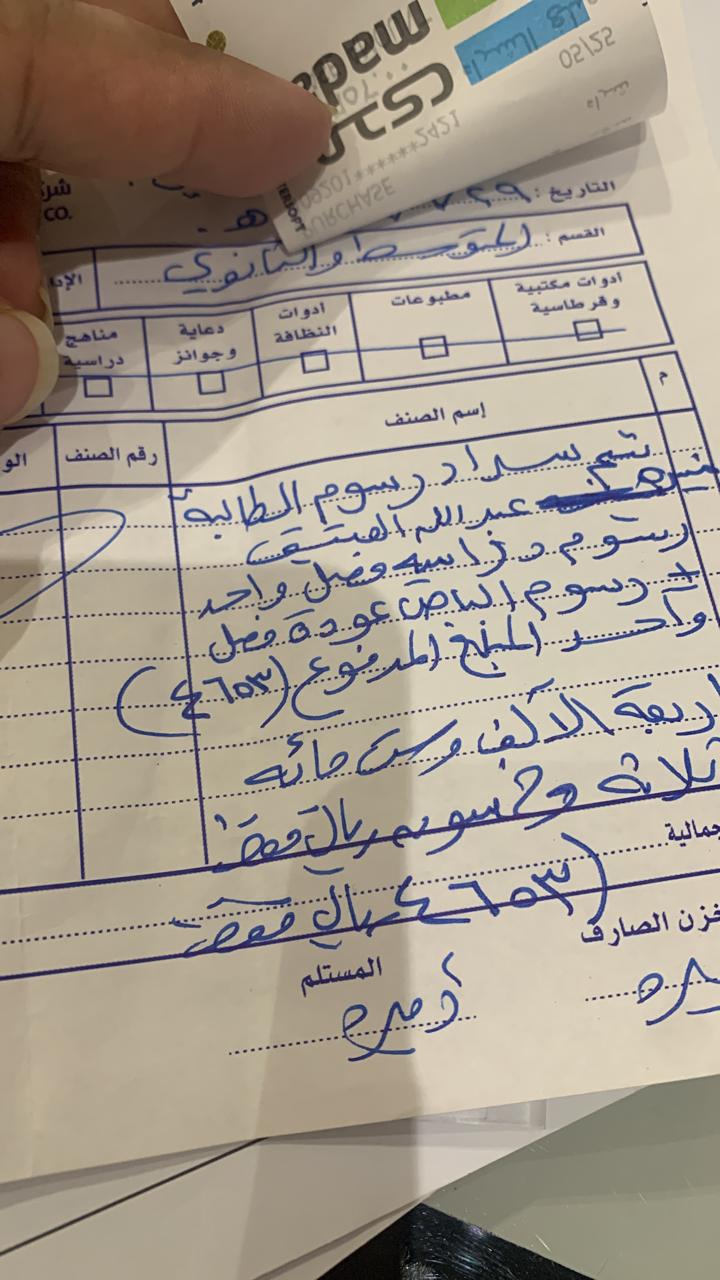 mada
مدى
05/25
09201******2421
PURCHASE
شرك
CO.
التاريخ :
هـ
القسم : المتوسط والثانوي
الإد
أدوات مكتبية وقرطاسية
مطبوعات
أدوات النظافة
دعاية وجوائز
مناهج دراسية
م
إسم الصنف
رقم الصنف
الو
تسديد رسوم الطالبة
عبد الله
رسوم دراسيه فصل واحد
+ رسوم الباص عودة فصل
واحد المبلغ المدفوع (٤٦٥٣)
اربعة الالف وست مائه
ثلاثة وخمسون ريال فقط
جمالية
(٤٦٥٣ ريال فقط
خزن الصارف
المستلم
أميره